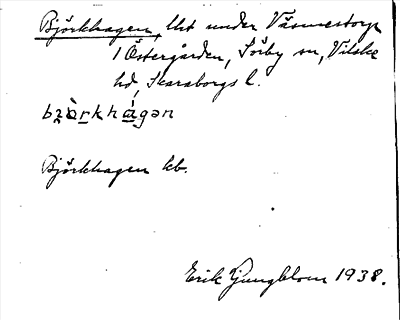 Björkhagen, lht under Väsmestorp
1 Östergården, Sörby sn, Vilske
hd, Skaraborgs l.
bʒö̀rkhágən
Björkhagen kb.
Erik Ljungblom 1938.